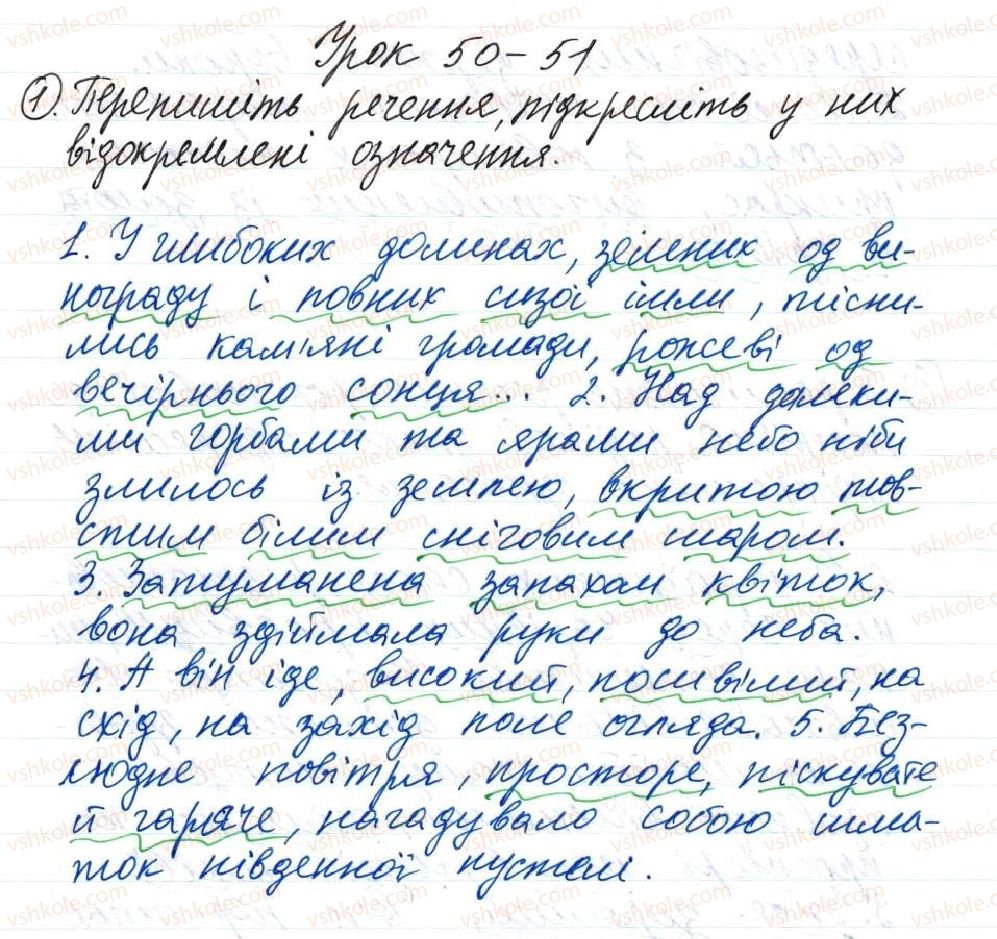 Урок 50-51
1. Перепишіть речення, підкресліть у них
відокремлені означення.
1. У глибоких долинах, зелених од ви-
нограду і повних сизої імли, тісни-
лись кам'яні громади, рожеві од
вечірнього сонця... 2. Над далеки-
ми горбами та ярами небо ніби
злилось із землею, вкритою тов-
стим білим сніговим шаром.
3. Затуманена запахом квіток,
вона здіймала руки до неба.
4. А він іде, високий, посивілий, на
схід, на захід поле огляда. 5. Без-
людне повітря, просторе, піскувате
й гаряче, нагадувало собою шма-
ток південної пустелі.